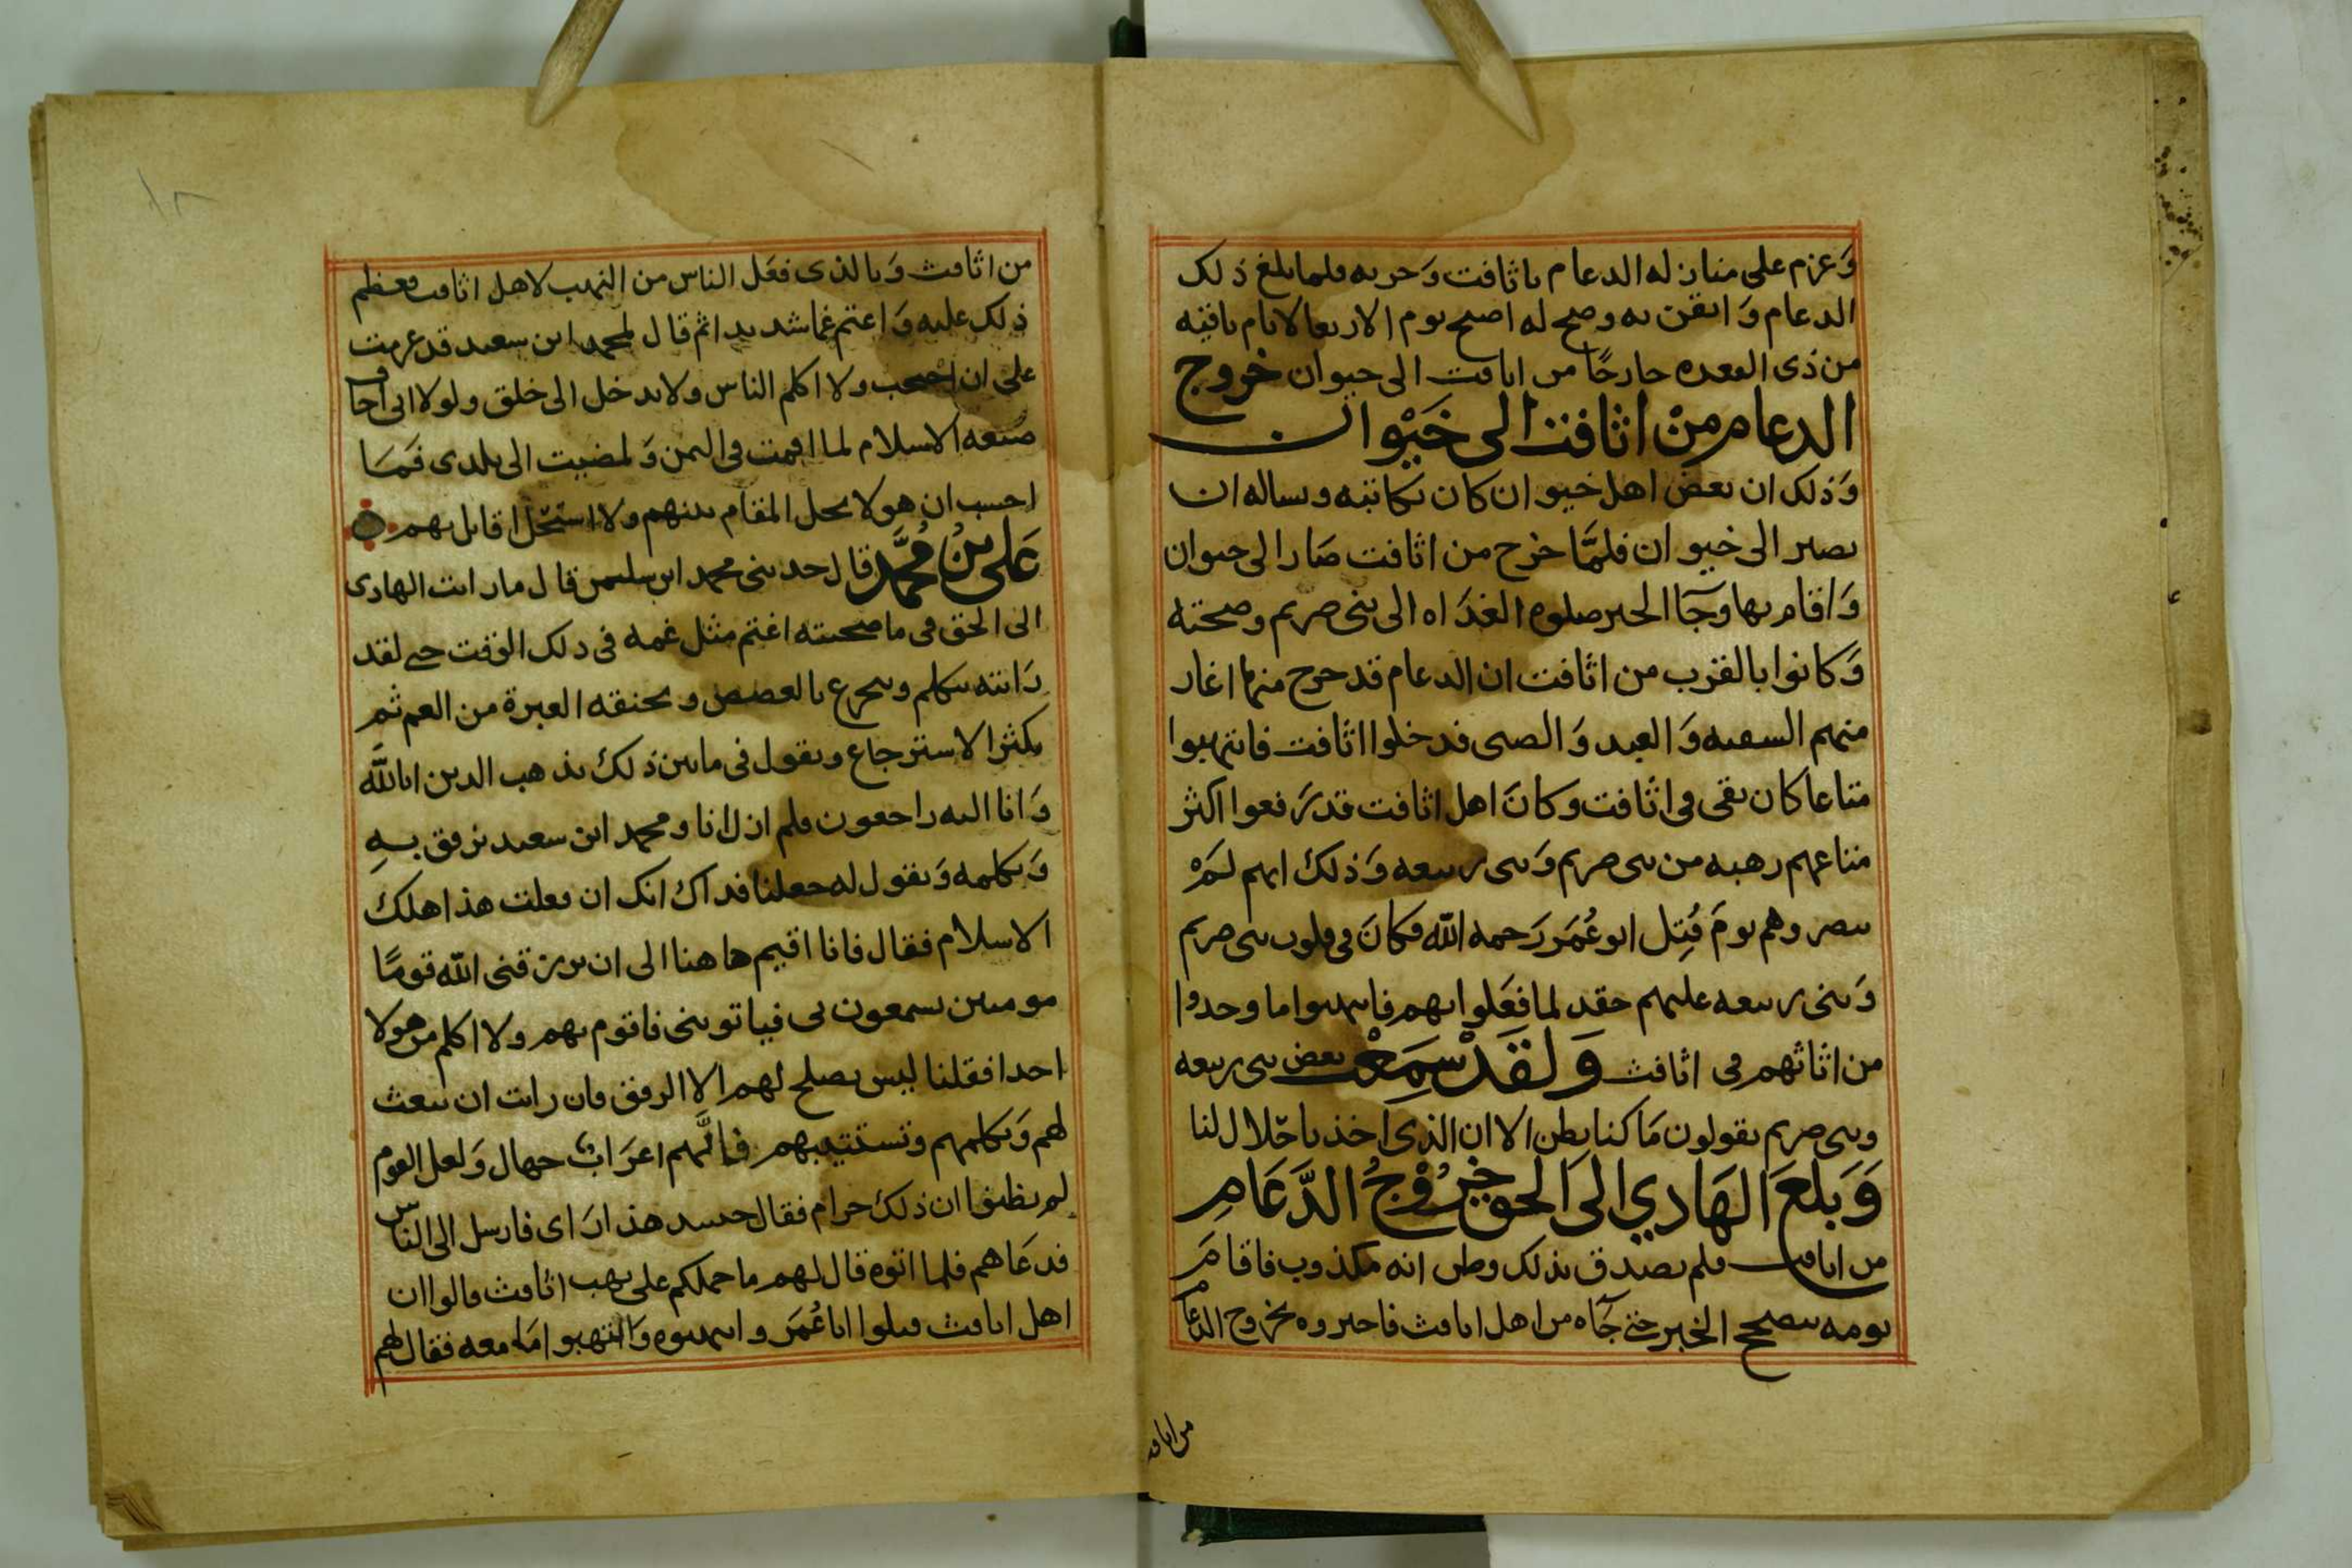 وَعزم على منازله الدعام باثافت وَحربه فلما بلغ ذلك
الدعام وَايقن به وصح له اصبح يوم الاربعا لايام باقيه
من ذى القعده خارجًا من اثافت الى خيوان خروج
الدعام مِنْ اثافت الى خَيْوان
وَذلك ان بعض اهل خيوان كان يكاتبه ويساله ان
يصير الى خيوان فلمَّا خرج من اثافت صَار الى خيوان
وَاقام بها وجَآ الخبر صلوه الغدَاه الى بنى صريم وصحته
وَكانوا بالقرب من اثافت ان الدعام قد خرج منها اغار
منهم السفيه وَالعبد وَالصبى فدخلوا اثافت فانتهبوا
متاعا كان بقى فى اثافت وكانَ اهل اثافت قد رَفعوا اكثر
متاعهم رهبه من بنى صريم وَبنى ربيعه وَذلك انهم لَمْ
ينصروهم يومَ قُتِل ابو عُمَر رَحمه الله فكانَ فى قلوب بنى صريم
وَبنى ربيعه عليهم حقد لما فعَلوا بهم فانتهبوا ما وجدوا
من اثاثهم فى اثافت وَلقَدْ سمِعْت بعض بنى ربيعه
وبنى صريم يقولون مَا كنا نظن الا ان الذى اخذنا حَلال لنا
وَبَلغَ الهَادي الى الحق خبرُ خُرُوْجُ الدَّعَامِ
من اثافت فلم يصدق بذلك وظن انه مكذوب فاقامَ
يومه يتصحح الخبر حتى جَآه من اهل اثافت فاخبروه بخروج الدعام
من اثافت
من اثافت وَبالذى فعَل الناس من النهب لاهل اثافت فعظم
ذلك عليه وَاغتم غما شديدا ثم قال لمحمد ابن سعيد قد عزمت
على ان احتجب ولا اكلم الناس ولا يدخل الى خلق ولولا انى اخاف
ضيعه الاسلام لما اقمت فى اليمن وَلمضيت الى بلدى فمَا
احسب ان هولا يحل المقام بينهم ولا استحل اقاتل بهم
عَلى بْنُ مُحمَّد قال حدثنى محمد ابن سليمن قال ما رايت الهادى
الى الحق فى ما صحبته اغتم مثل غمه فى ذلك الوقت حتى لقد
رَايته يتكلم ويتجرع بالغصص ويخنقه العبرة من الغم ثم
يكثر الاسترجاع ويقول فى ما بين ذلك يذهب الدين انا لله
وَانا اليه راجعون فلم ازل انا ومحمد ابن سعيد نرفق بهِ
وَنكلمه وَنقول له جعلنا فداك انك ان فعلت هذا هلك
الاسلام فقال فانا اقيم هاهنا الى ان يرزقنى الله قومًا
مومنين يسمعون بى فياتوننى فاقوم بهم ولا اكلم من هولا
احدا فقلنا ليس يصلح لهم الا الرفق فان رايت ان تبعث
لهم وَتكلمهم وتستتيبهم فانَّهم اعرَابٌ جهال وَلعل القوم
لم يظنوا ان ذلك حرام فقال حينيد هذا رَاى فارسل الى الناس
فدعَاهم فلما اتوه قال لهم ما حملكم على نهب اثافت قالوا ان
اهل اثافت قتلوا ابا عُمَر وانتهبوه وَانتهبوا مَا معه فقال لهم